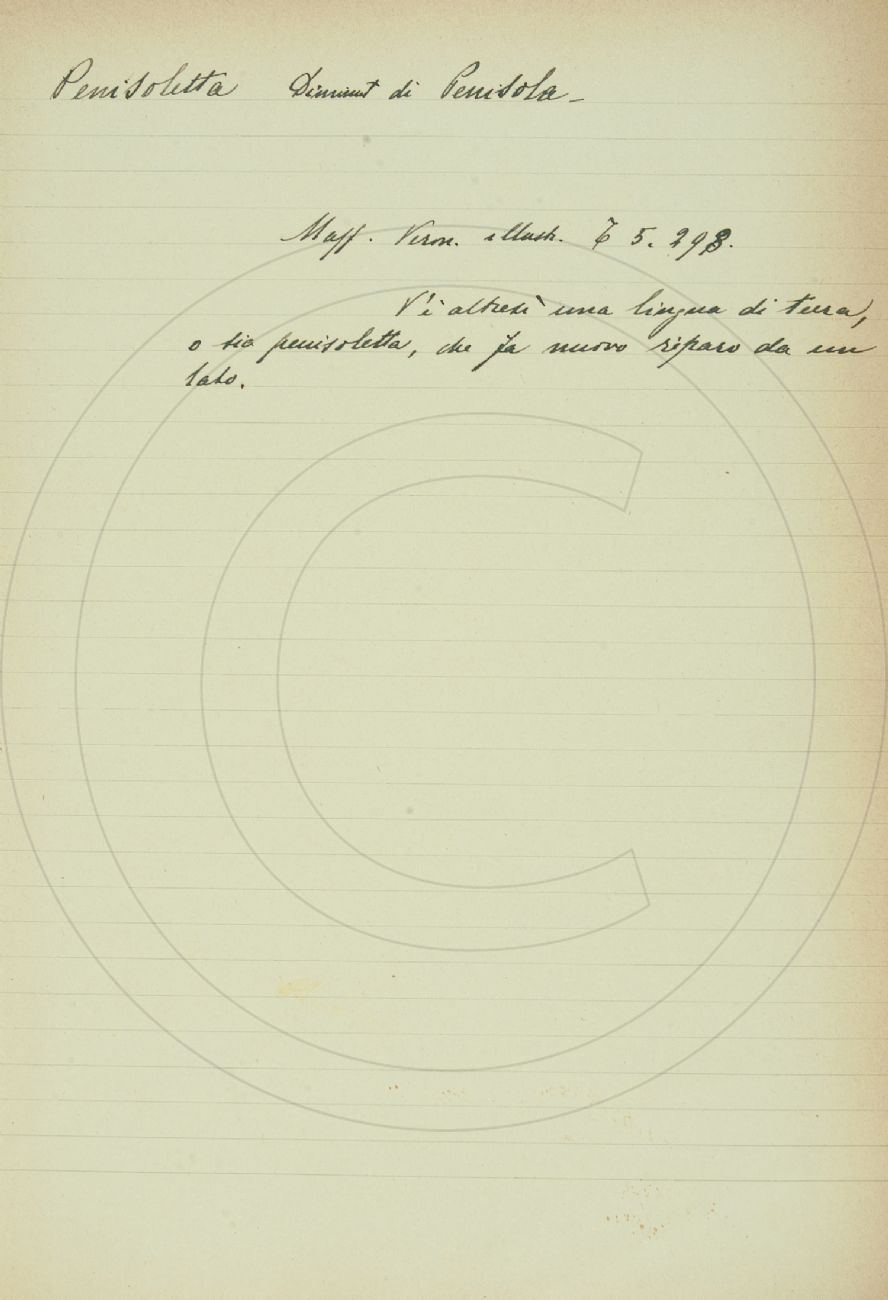 Penisoletta Diminut di Penisola_
Maff. Veron. illustr. T 5. 298.
V'è altresì una lingua di terra,
o sia penisoletta, che fa nuovo riparo da un
lato.